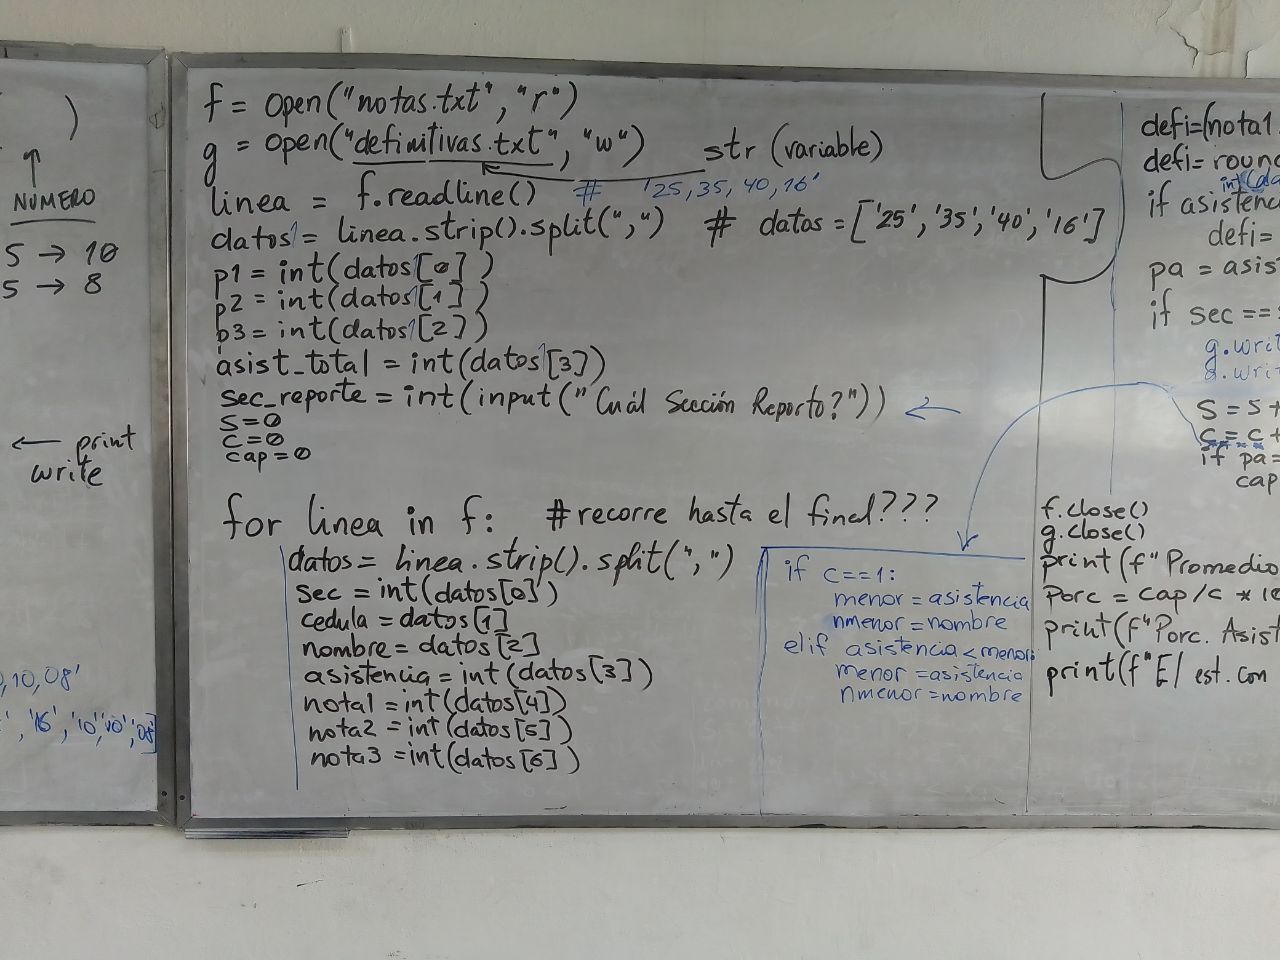 )
NUMERO
5 → 10
5 → 8
← print
write
,10,08'
, '16', '10', '10', '08']
f = open("notas.txt", "r")
g = open("definitivas.txt", "w") str (variable)
linea = f.readline() # '25,35,40,16'
datos1 = linea.strip().split(",") # datos = ['25', '35', '40', '16']
p1 = int(datos1[0])
p2 = int(datos1[1])
p3 = int(datos1[2])
asist_total = int(datos1[3])
sec_reporte = int(input("Cuál Sección Reporto?")) ←
S=0
C=0
cap=0
for linea in f: #recorre hasta el final???
datos = linea.strip().split(",")
sec = int(datos[0])
cedula = datos[1]
nombre = datos[2]
asistencia = int(datos[3])
nota1 = int(datos[4])
nota2 = int(datos[5])
nota3 = int(datos[6])
if c==1:
menor = asistencia
nmenor = nombre
elif asistencia < menor:
menor = asistencia
nmenor = nombre
defi=(nota1.
defi= roun
int(da
if asistenc
defi=
pa = asis
if sec ==
g.writ
g.writ
S = S +
C = C +
if pa =
cap
f.close()
g.close()
print (f" Promedio
Porc = cap/c * 10
print(f"Porc. Asist
print(f"El est. con